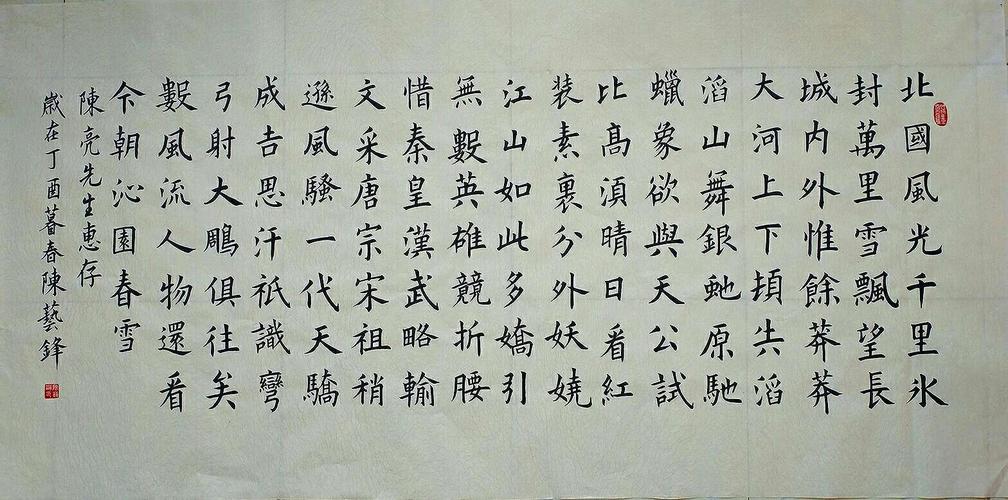 北國風光千里氷
封萬里雪飄望長
城內外惟餘莽莽
大河上下頓失滔
滔山舞銀虵原馳
蠟象欲與天公試
比高須晴日看紅
装素裹分外妖嬈
江山如此多嬌引
無數英雄競折腰
惜秦皇漢武略輸
文采唐宗宋祖稍
遜風騷一代天驕
成吉思汗祇識彎
弓射大鵰俱往矣
數風流人物還看
今朝沁園春雪
陳亮先生惠存
歲在丁酉暮春陳藝鋒